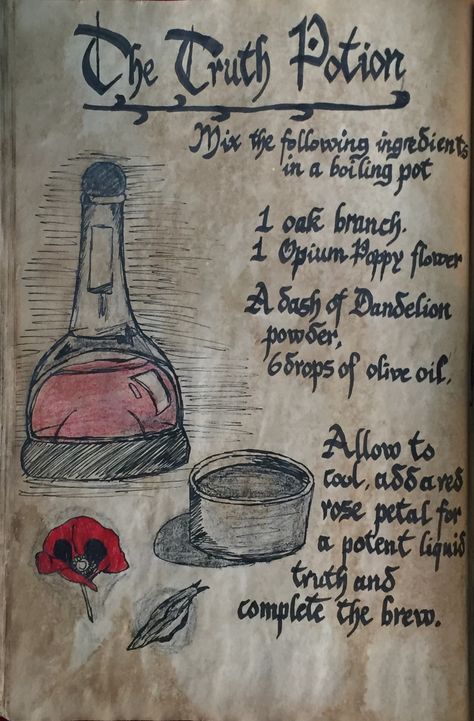 The Truth Potion
Mix the following ingredients
in a boiling pot
1 oak branch.
1 Opium Poppy flower
A dash of Dandelion
powder,
6 drops of olive oil.
Allow to
cool, add a red
rose petal for
a potent liquid
truth and
complete the brew.